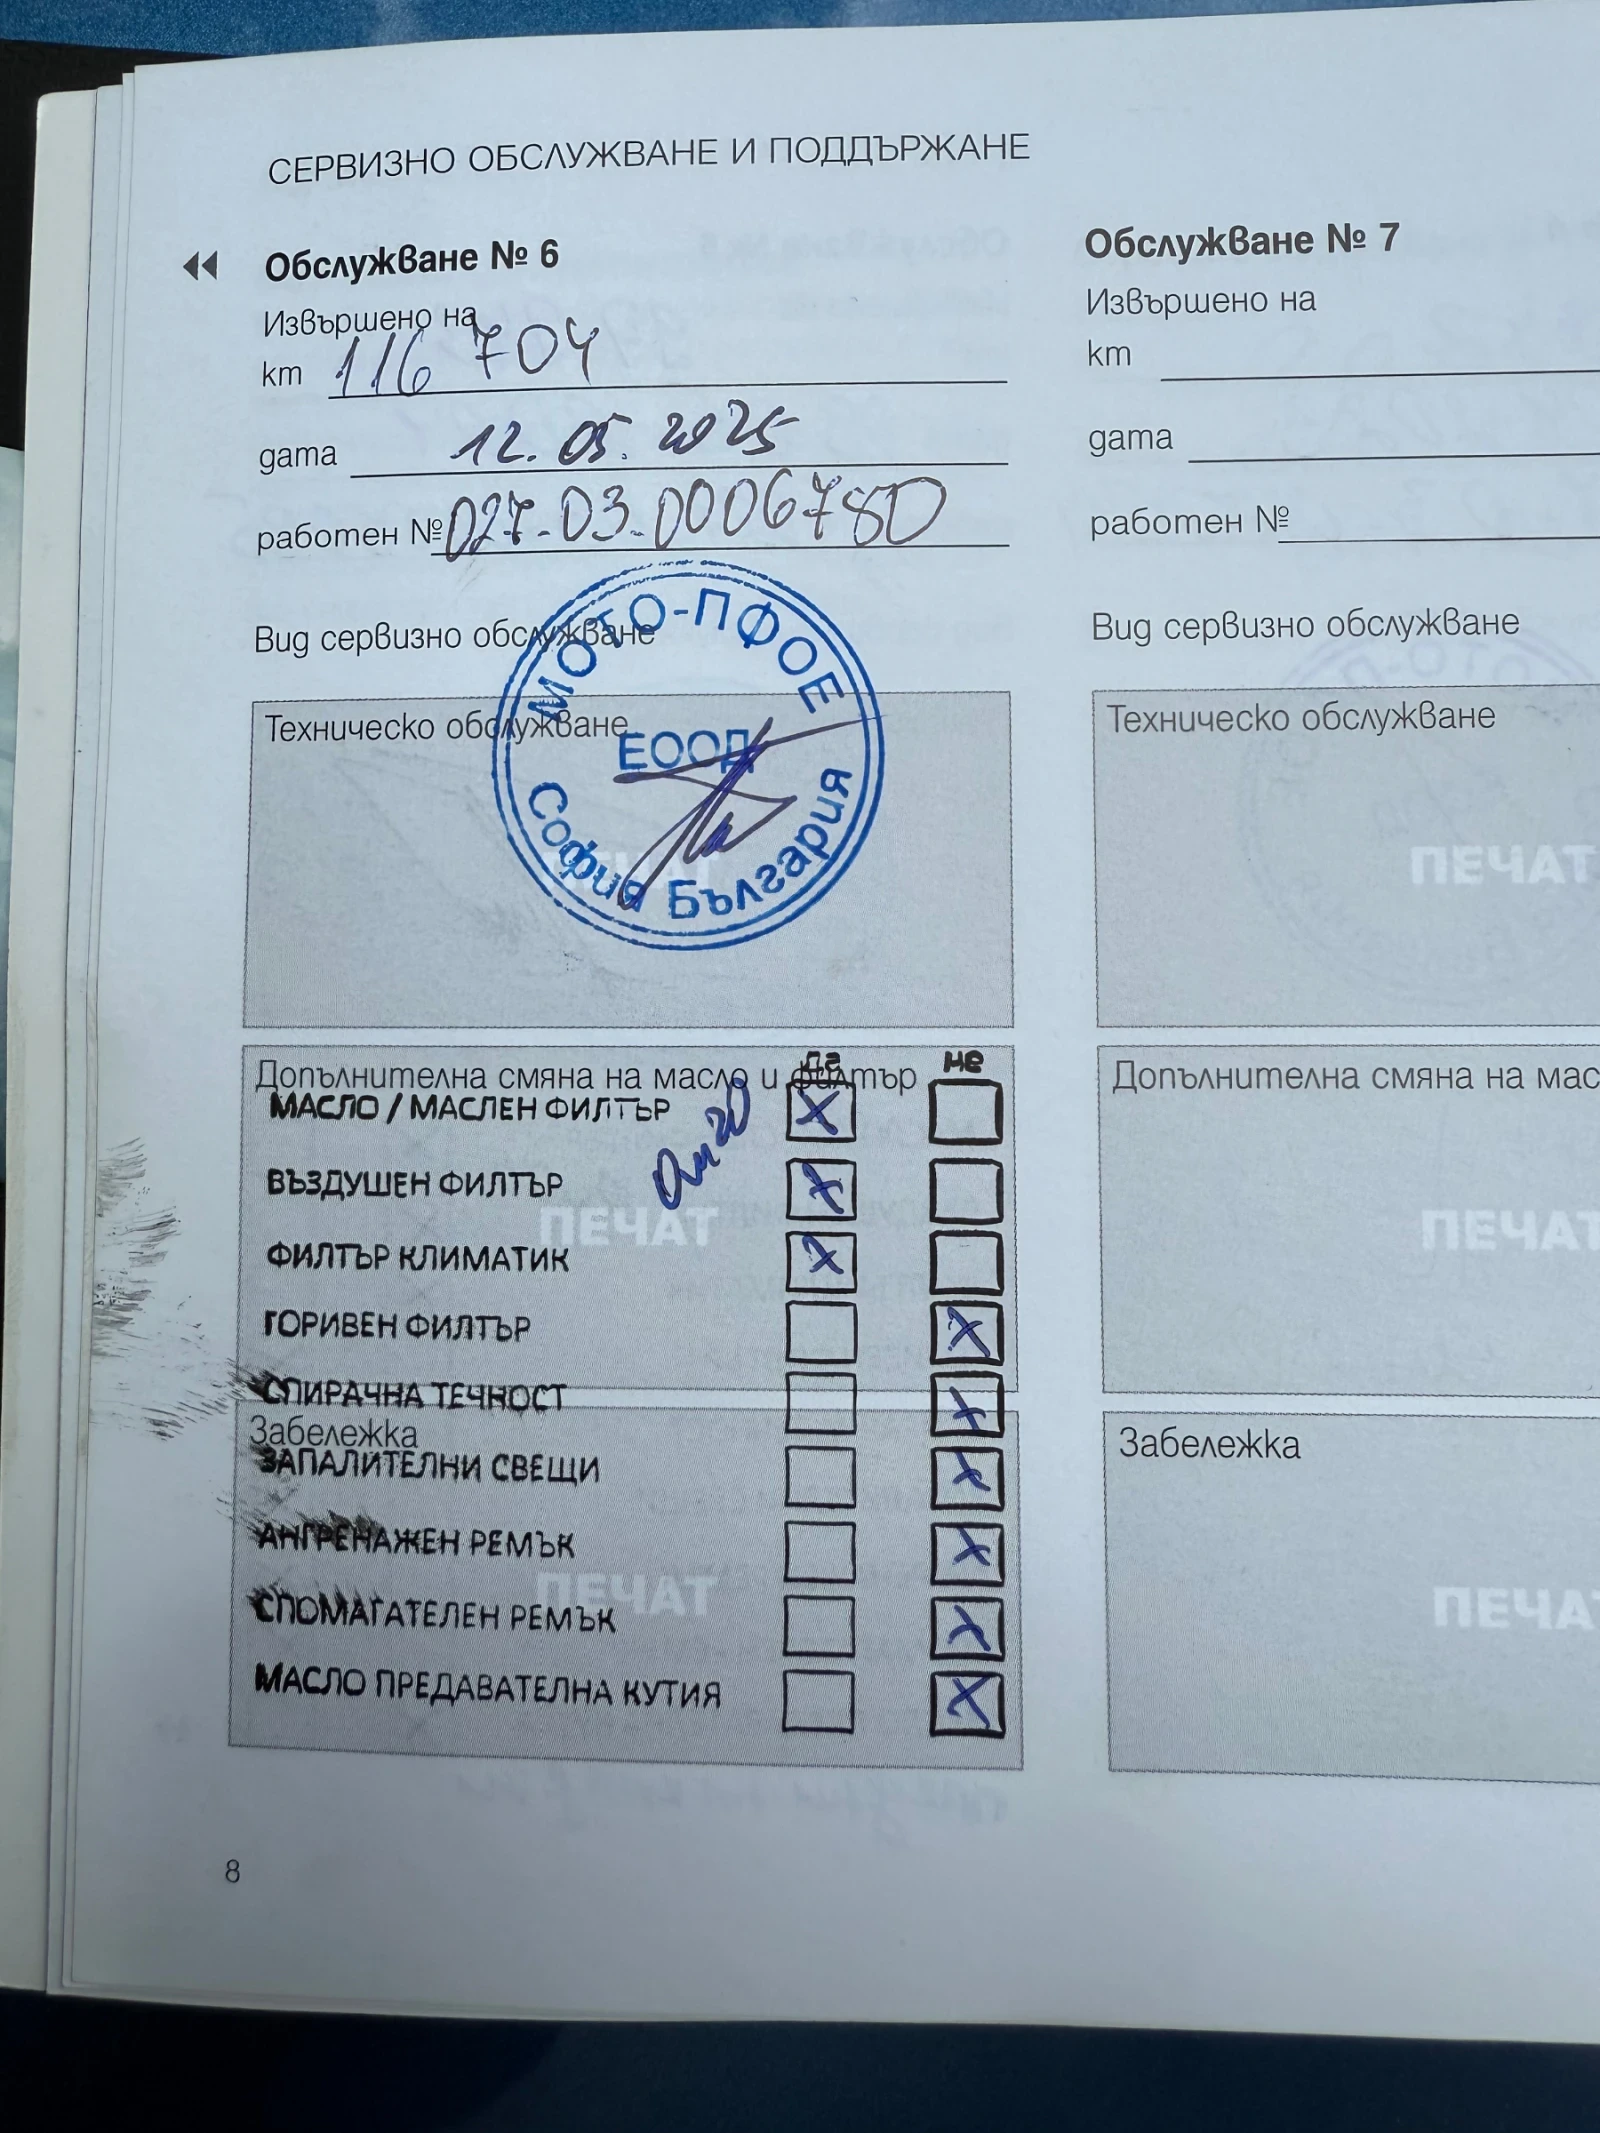 СЕРВИЗНО ОБСЛУЖВАНЕ И ПОДДЪРЖАНЕ
Обслужване № 6
Извършено на
km 116 704
дата 12.05.2025
работен № 027.03.0006780
Вид сервизно обслужване
Техническо обслужване
МОТО-ПФОЕ
ЕООД
София България
ПЕЧАТ
Допълнителна смяна на масло и филтър
да не
МАСЛО / МАСЛЕН ФИЛТЪР X
ВЪЗДУШЕН ФИЛТЪР X
ПЕЧАТ
ФИЛТЪР КЛИМАТИК X
ГОРИВЕН ФИЛТЪР X
СПИРАЧНА ТЕЧНОСТ X
Забележка
ЗАПАЛИТЕЛНИ СВЕЩИ X
АНГРЕНАЖЕН РЕМЪК X
ПЕЧАТ
СПОМАГАТЕЛЕН РЕМЪК X
МАСЛО ПРЕДАВАТЕЛНА КУТИЯ X
8
Обслужване № 7
Извършено на
km
дата
работен №
Вид сервизно обслужване
Техническо обслужване
ПЕЧАТ
Допълнителна смяна на мас
ПЕЧАТ
Забележка
ПЕЧАТ